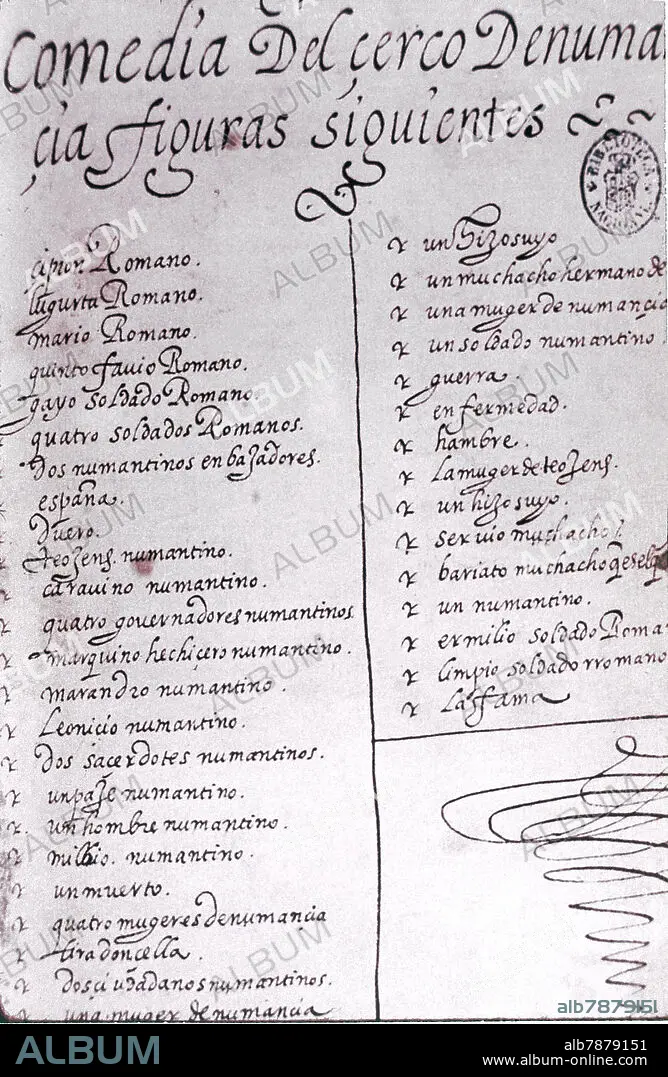 Comedia Del çerco Denuma
çia figuras siguientes
çipion Romano.
Iugurta Romano.
mario Romano.
quinto fauio Romano.
gayo soldado Romano.
quatro soldados Romanos.
Dos numantinos enbajadores.
españa.
Duero.
teojenes numantino.
carauino numantino.
quatro gouernadores numantinos
marquino hechicero numantino.
marandro numantino.
Leonicio numantino.
Dos sacerdotes numantinos.
un paje numantino.
un hombre numantino.
numantino.
un muerto.
quatro mugeres denumançia
lira doncella.
dos çiudadanos numantinos.
una muger de numançia
un hijo suyo
un muchacho hermano de
una muger de numançia
un soldado numantino
guerra.
enfermedad.
hambre.
La muger de teojenes.
un hijo suyo.
seruio muchacho
bariato muchacho
un numantino.
ermilio soldado Roma
limpio soldado rromano
La fama
BIBLIOTECA NACIONAL
ALBUM
alb7879151
ALBUM
alb7879151
www.album-online.com